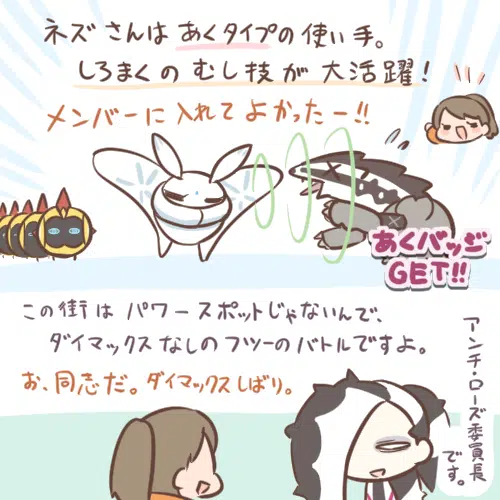 ネズさんはあくタイプの使い手。
しろまくのむし技が大活躍！
メンバーに入れてよかったー!!
あくバッジ
GET!!
この街はパワースポットじゃないんで、
ダイマックスなしのフツーのバトルですよ。
お、同志だ。ダイマックスしばり。
アンチ・ローズ委員長
です。